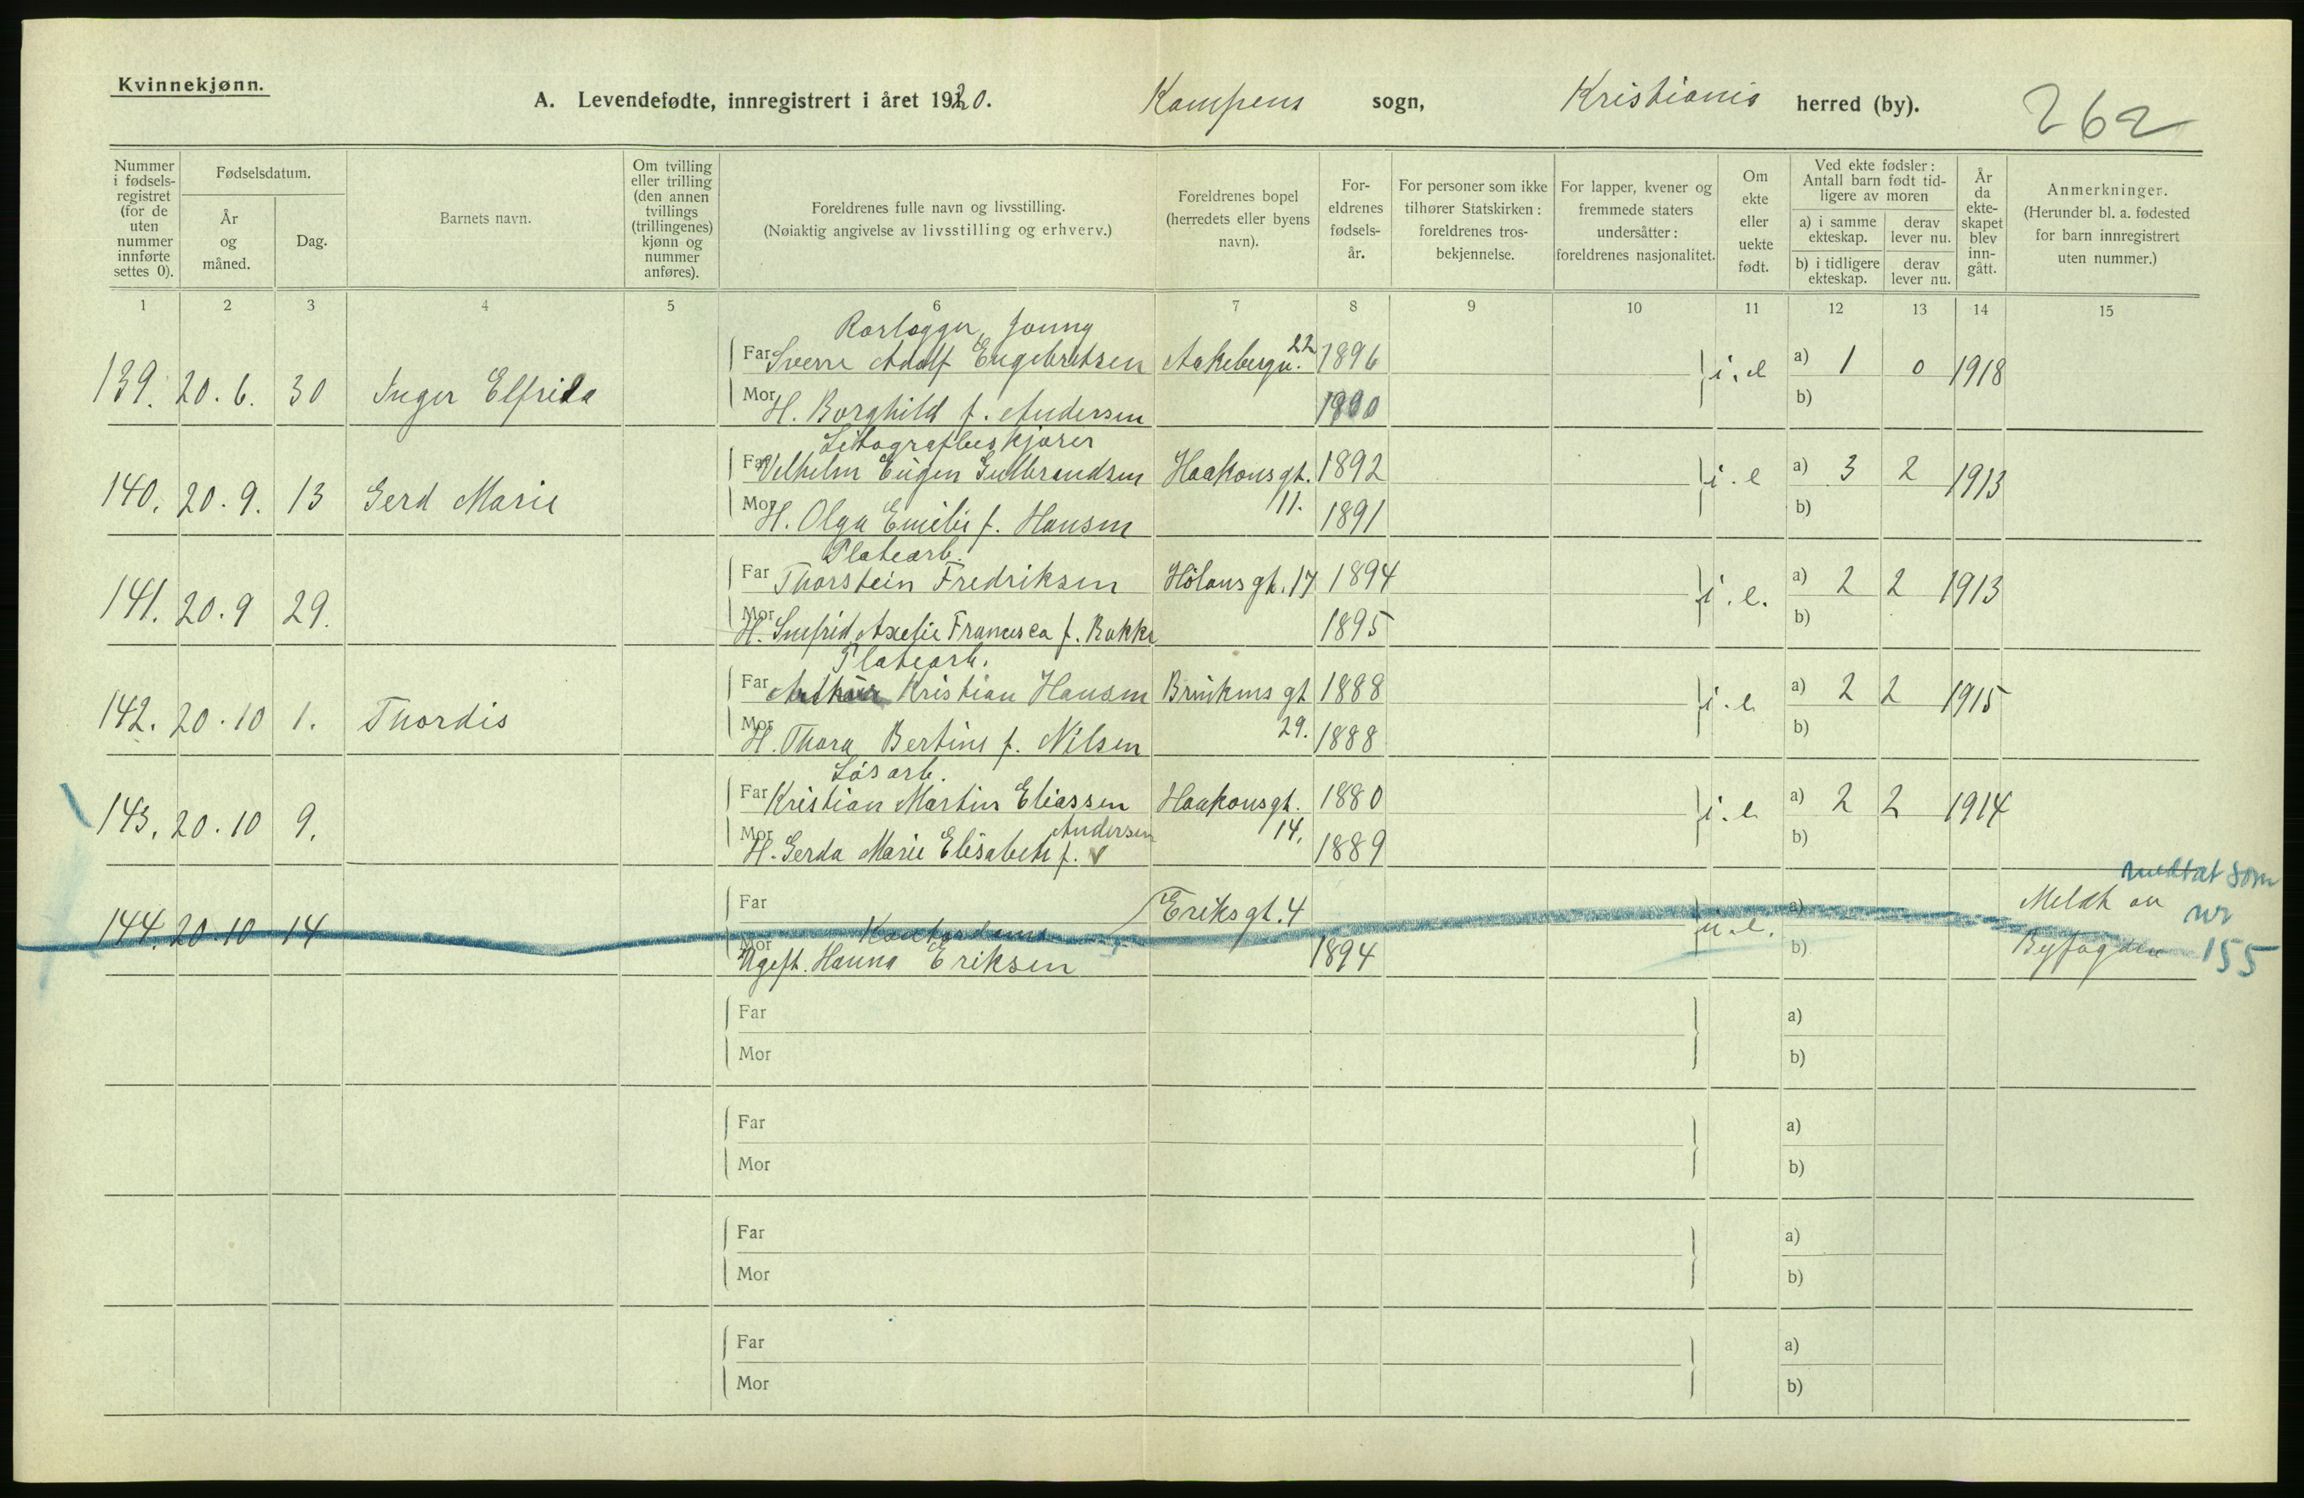 Kvinnekjønn.
A. Levendefødte, innregistrert i året 1920. Kampens sogn, Kristiania herred (by). 262
Nummer i fødsels-registret (for de uten nummer innførte settes 0).
Fødselsdatum.
År og måned.
Dag.
Barnets navn.
Om tvilling eller trilling (den annen tvillings (trillingenes) kjønn og nummer anføres).
Foreldrenes fulle navn og livsstilling.
(Nøiaktig angivelse av livsstilling og erhverv.)
Foreldrenes bopel (herredets eller byens navn).
For-eldrenes fødsels-år.
For personer som ikke tilhører Statskirken: foreldrenes tros-bekjennelse.
For lapper, kvener og fremmede staters undersåtter: foreldrenes nasjonalitet.
Om ekte eller uekte født.
Ved ekte fødsler: Antall barn født tid-ligere av moren
a) i samme ekteskap.
derav lever nu.
b) i tidligere ekteskap.
derav lever nu.
År da ekte-skapet blev inn-gått.
Anmerkninger.
(Herunder bl. a. fødested for barn innregistrert uten nummer.)
1 2 3 4 5 6 7 8 9 10 11 12 13 14 15
Rørlegger
139. 20. 6. 30 Inger Elfrida Far Sverre Adolf Engebretsen Aakebergv. 22 1896 i. e a) 1 0 1918
Mor H. Borghild f. Andersen 1900 b)
Litografbeskjærer
140. 20. 9. 13 Gerd Marie Far Vilhelm Eugen Gulbrandsen Haakonsgt. 1892 i. e a) 3 2 1913
Mor H. Olga Emilie f. Hansen 11. 1891 b)
Platearb.
141. 20. 9 29. Far Thorstein Fredriksen Hölansgt. 17 1894 i. e. a) 2 2 1913
Mor H. Axelie Francisca f. Bakke 1895 b)
Platearb.
142. 20. 10 1. Thordis Far Arthur Kristian Hansen gt 1888 i. e a) 2 2 1915
Mor H. Thora Bertine f. Nilsen 29. 1888 b)
Løsarb.
143. 20. 10 9. Far Kristian Martin Eliassen Haakonsgt. 1880 i. e a) 2 2 1914
Andersen
Mor H. Gerda Marie Elisabeth f. 14. 1889 b)
medtat som
144. 20. 10 14 Far Eriksgt. 4 u. e. a) Meldt av nr
Kontordame
Mor Ugift. Hanna Eriksen 1894 b) Byfogden 155
Far a)
Mor b)
Far a)
Mor b)
Far a)
Mor b)
Far a)
Mor b)